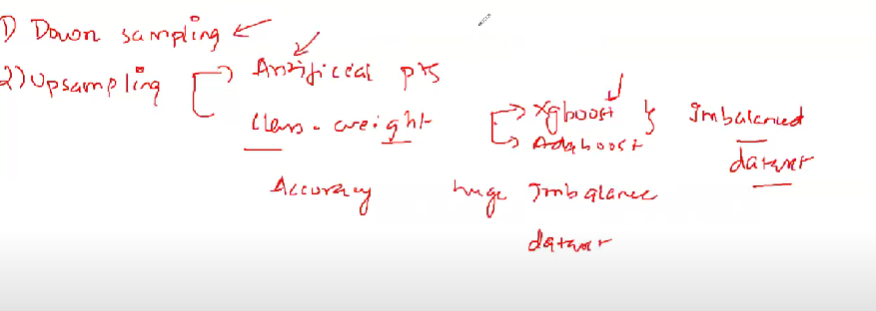 1) Down sampling
2) Upsampling
Artificial pts
class-weight
Xgboost
Adaboost
Imbalanced
dataset
Accuracy
huge Imbalance
dataset